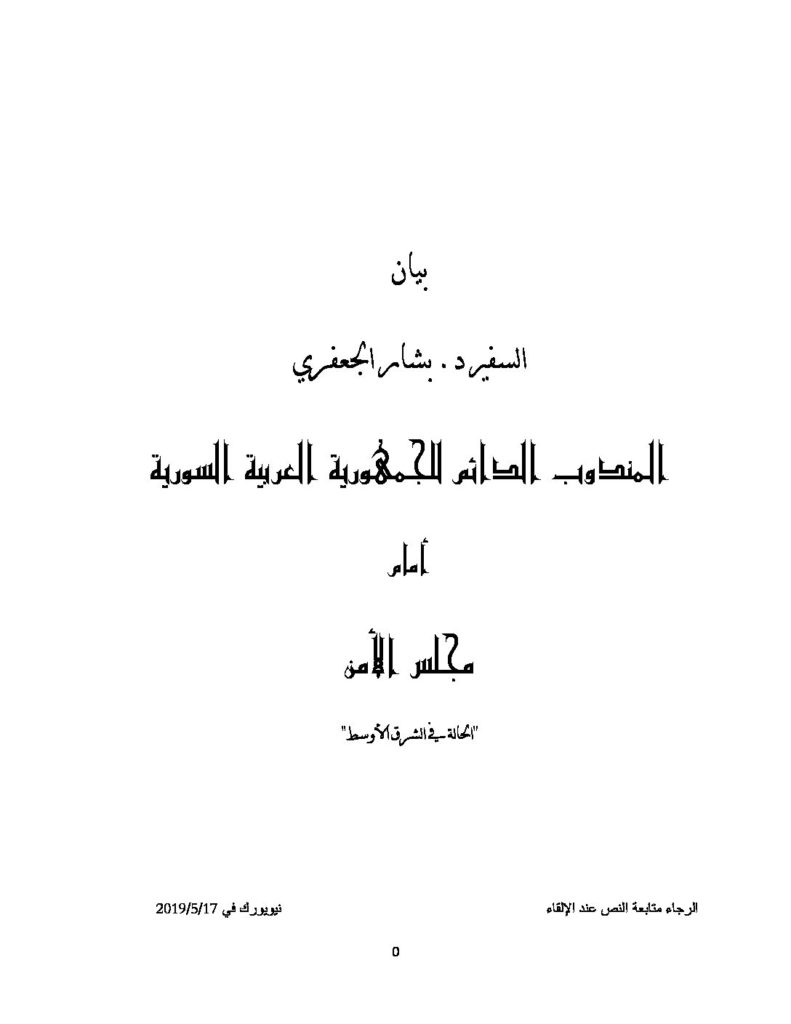 بيان
السفير د. بشار الجعفري
المندوب الدائم للجمهورية العربية السورية
أمام
مجلس الأمن
"الحالة في الشرق الأوسط"
الرجاء متابعة النص عند الإلقاء نيويورك في 2019/5/17
0